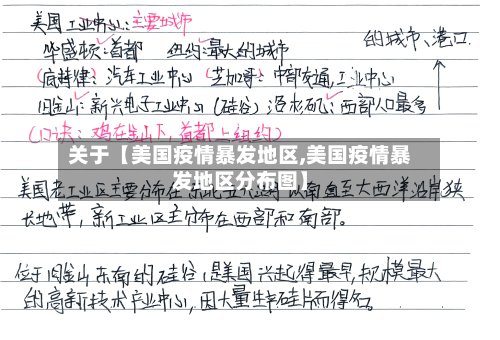 美国工业中心:主要城市
华盛顿:首都 纽约:最大的城市 的城市、港口
(底特律:汽车工业中心 (芝加哥:中部交通,工业中心
旧金山:新兴电子工业中心(硅谷) 洛杉矶:西部人口最多
(口诀:鸡在金山下,首都上纽约)
关于【美国疫情暴发地区,美国疫情暴
发地区分布图】
美国老工业区主要分布在 以南至大西洋沿岸狭
长地带,新工业区主分布在西部和南部。
位于旧金山东南的硅谷,是美国兴起得最早,规模最大
的高新技术产业中心,因大量生产硅片而得名。